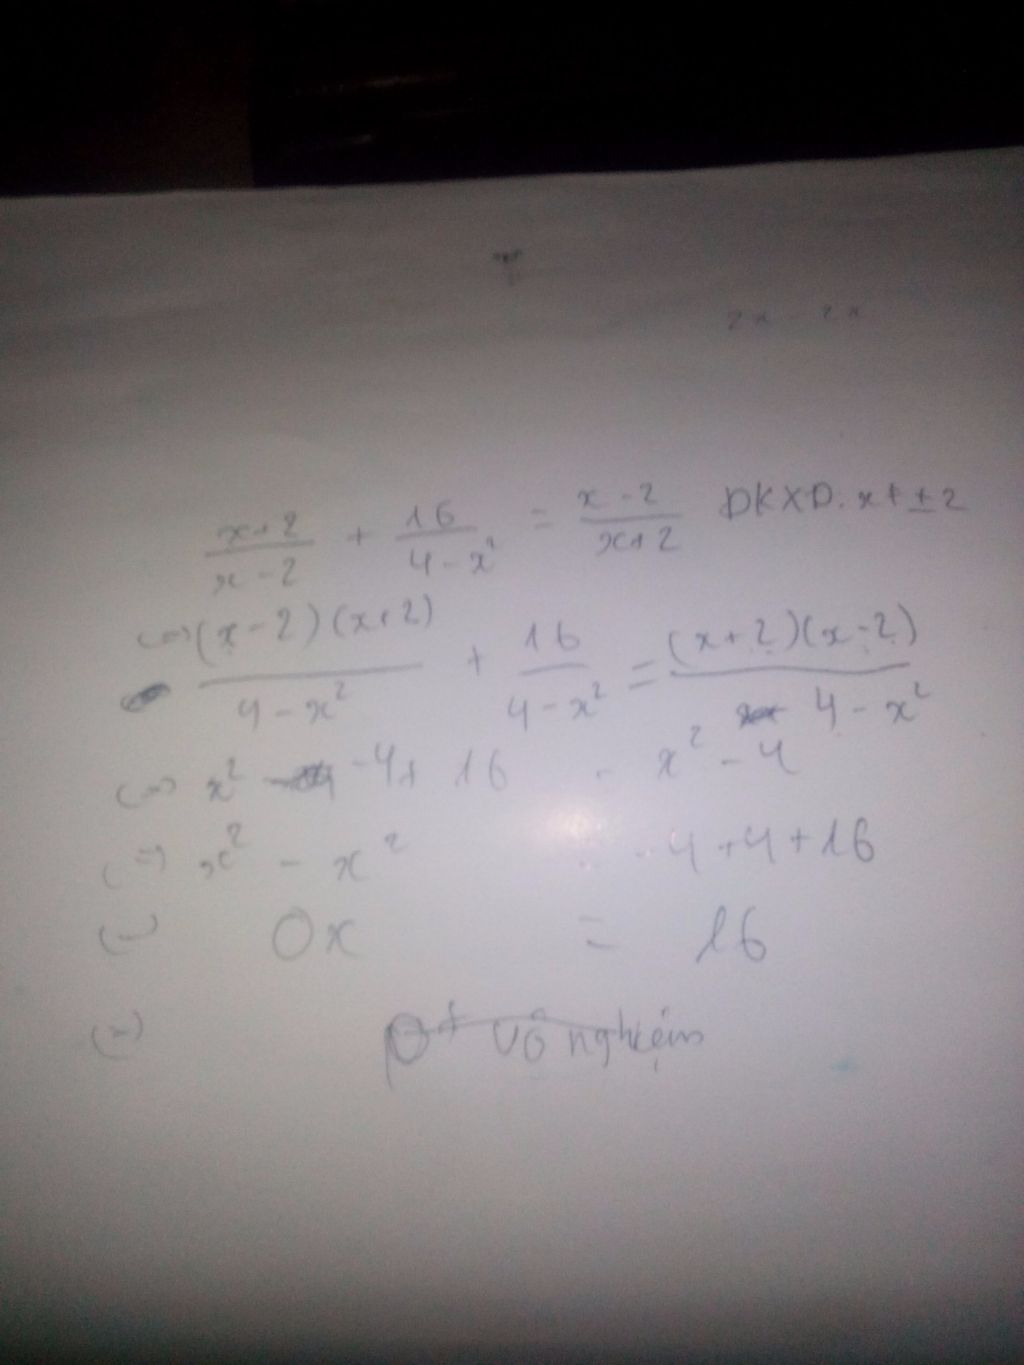 2x 2x
x+2/x-2 + 16/4-x² = x-2/x+2 ĐKXD. x ≠ ±2
(=) (x-2)(x+2)/4-x² + 16/4-x² = (x+2)(x-2)/4-x²
(=) x² -4+ 16 = x² - 4
(=) x² - x² = -4+4+16
(=) 0x = 16
(=) Pt vô nghiệm